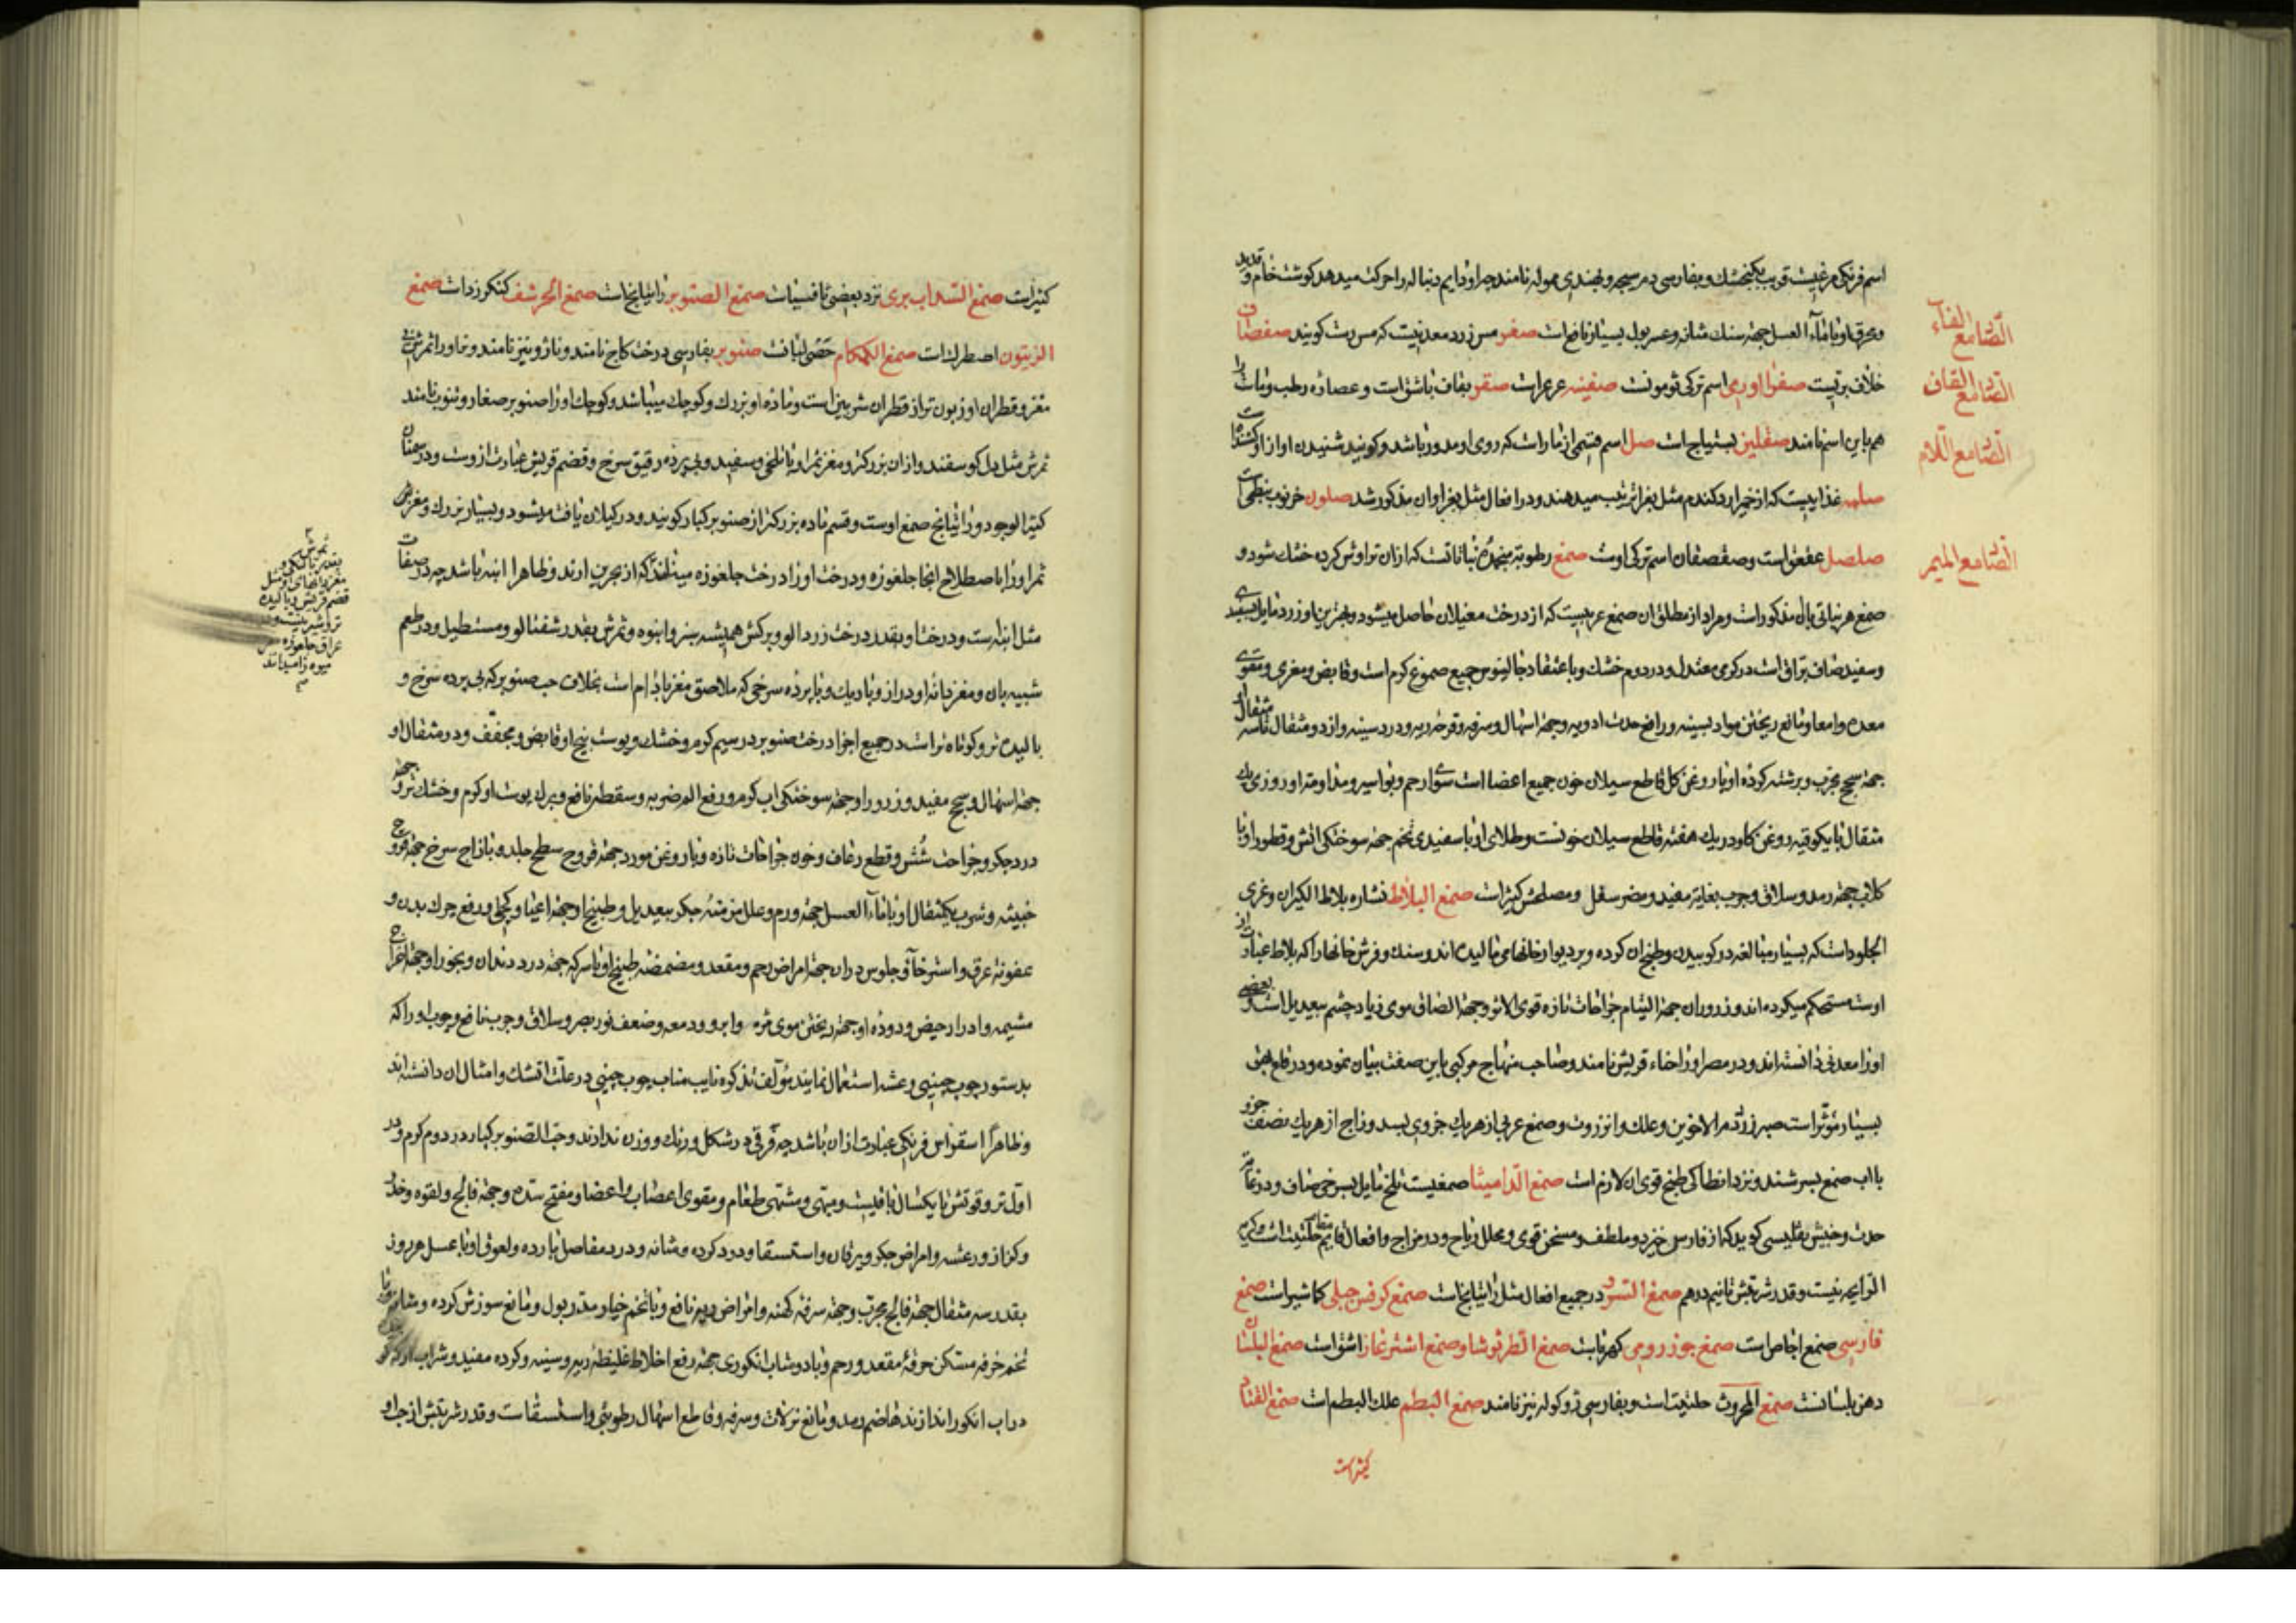 اسم فرنکی مرغیست قریب بکنجشك و بفارسی دم سیجه و بهندی موله نامند چرا و دایم دنباله را حرکت میدهد کوشت خام و قدید
و عرق او با ماء العسل جهة سنك مثانه و عسر بول بسیار نافع است صفر مس زرد معدنیست که مس رست کویند صفصاف
خلاف بریست صفرا اوری اسم ترکی ثومونست صفینه عرعر است صقر بقاف باشق است و عصاره رطب و نبات را
هم باین اسم نامند صقلین بستیاج است صل اسم قسمی از مار است که روی او مدور باشد و کویند شنیدن اواز او کشنده است
صلبه غذاییست که از خمیر ارد کندم مثل بغرا ترتیب میدهند و در افعال مثل بغرا و ان مذکور شد صلون خرنوب نبطی است
صلصل عقعق است و صقصقان اسم ترکی اوست صمغ رطوبة منجمده نباتات که ازان تراوش کرده خشك شود و
صمغ هر نباتی باان مذکور است و مراد از مطلق ان صمغ عربیست که از درخت مغیلان حاصل میشود و بهترین او زرد مایل بسفیدی
و سفید صاف براق است در کرمی معتدل و در دوم خشك و باعتقاد جالینوس جمیع صموغ کرم است و قابض و مغری و مقوی
معده و امعا و مانع ریختن مواد بسینه و رافع حدت ادویه و جهة اسهال و سرفه و قرحه ریه و درد سینه و از دو مثقال تا سه مثقال
جهة سحج مجرب و برشته کرده او با روغن کل قاطع سیلان خون جمیع اعضا است سوای رحم و بواسیر و مداومة او روزی یك
مثقال با یکوقیه روغن کاو در یك هفته قاطع سیلان خونست و طلای او با سفیدی تخم جهة سوختکی اتش و قطور او با
کلاب جهة رمد و سلاق و جرب بغایة مفید و مضر سفل و مصلحش کثیر است صمغ البلاط نشاره بلاط الکیران و غری
الجلود است که بسیار مبالغه در کوبیدن و طبخ ان کرده و بر دیوار خانها می مالیده اند و سنك و فرش خانها را که بلاط عبارت از
اوست مستحکم میکرده اند و ذرور ان جهة التیام جراحات تازه قوی الاثر و جهة الصاق موی زیاد چشم بیعدیل است و بعضی
اورا معدنی دانسته اند و در مصر او را خاء قریش نامند و صاحب منهاج مرکبی باین صفت بیان نموده و در قلع بهق
بسیار مؤثر است صبر زرد دم الاخوین و علك و انزروت و صمغ عربی از هریك جزوی بسد و زاج از هریك نصف جزو
باآب صمغ بسرشند و نزد انطاکی طبخ قوی ان لازم است صمغ الدامیثا صمغیست تلخ مایل بسرخی صاف و در غایة
حدت و حبیش تفلیسی کوید که از فارس خیزد و ملطف و مسخن قوی و محلل ریاح و در مزاج و افعال قایم مقام حلتیت است و کریه
الرایحه نیست و قدر شربتش تا نیم درهم صمغ السرو در جمیع افعال مثل راتیانج است صمغ کرفس جبلی کماشیر است صمغ
فارسی صمغ اجاص است صمغ جوز رومی کهرباست صمغ الطرثوث و صمغ اشترغار اشق است صمغ البلسان
دهن بلسانست صمغ المحروث حلتیت است و بفارسی زوکوله نیز نامند صمغ البطم علك البطم است صمغ القتاد
کثیراست
الصاد مع الفاء
الصاد مع القاف
الصاد مع اللام
الصاد مع المیم
کثیراست صمغ السداب بری نزد بعضی ثافسیاست صمغ الصنوبر راتیانج است صمغ الحرشف کنکرزد است صمغ
الزیتون اصطرك است صمغ الکمکام حصی لبانست صنوبر بفارسی درخت کاج نامند و ناژو نیز نامند و نر او را ثمرش بی
مغز و قطران او زبون تر از قطران شربین است و ماده او بزرك و کوچك میباشد و کوچك او را صنوبر صغار و تنوب نامند
ثمرش مثل دل کوسفند و ازان بزرکتر و مغز ثمر او با تلخی و سفید و بی پرده رقیق سرخ و قضم قریش عبارت ازوست و در سمنان
کثیر الوجود و راتیانج صمغ اوست و قسم ماده بزرکتر از صنوبر کبار کویند و در کیلان یافت میشود و بسیار بزرك و مغز
ثمر او را باصطلاح انجا جلغوزه و درخت او را درخت جلغوزه مینامند که از بحرین ارند و ظاهرا انبه باشد چه در صفات
مثل انبه است و درخت او بقدر درخت زردالو و برکش همیشه سبز و انبوه و ثمرش بقدر شفتالو و مستطیل و در طعم
شبیه بان و مغز دانه او دراز و باریك و با پرده سرخی که ملاصق مغز بادام است بخلاف حب صنوبر که بی پرده سرخ و
بالیده تر و کوتاه تر است در جمیع اجزا درخت صنوبر در سیم کرم و خشك و پوست بیخ او قابض و مجفف و دو مثقال او
جهة اسهال و سحج مفید و ذرور او جهة سوختکی اب کرم و رفع الم ضربه و سقطه نافع و برك پوست او کرم و خشك تر و جهة
درد جکر و جراحت شش و قطع رعاف و خون جراحات تازه و با روغن مورد جهة قروح سطح جلد و با زاج سرخ جهة قروح
خبیثه و شرب یکمثقال او با ماء العسل جهة ورم و علل مزمنه جکر بیعدیل و طبیخ او جهة اعیا و کجلی و رفع چرك بدن و
عفونة عرق و استرخا و جلوس دران جهة امراض رحم و مقعد و مضمضه طبیخ او با سرکه جهة درد دندان و بخور او جهة اخراج
مشیمه و ادرار حیض و دوده او جهة ریختن موی مژه و ابرو و دمعه و ضعف نور بصر و سلاق و جرب نافع و چوب او را که
بدستور چوب چینی و عشبه استعمال نمایند مؤلف تذکره نایب مناب چوب چینی در علت اتشك و امثال ان دانسته اند
و ظاهرا اسقواس فرنکی عبارت ازان باشد چه فرقی در شکل و رنك و وزن ندارند و حب الصنوبر کبار در دوم کرم و در
اول تر و قوتش تا یکسال باقیست و مبهی و مشهی طعام و مقوی اعصاب و اعضا و مفتح سده و جهة فالج و لقوه و خدر
و کزاز و رعشه و امراض جکر و یرقان و استسقا و درد کرده و مثانه و درد مفاصل بارده و لعوق او با عسل هر روز
بقدر سه مثقال جهة فالج مجرب و جهة سرفه کهنه و امراض ریه نافع و با تخم خیار مدر بول و مانع سوزش کرده و مثانه
تخم خرفه مسکن حرقة مقعد و رحم و با دوشاب انکوری جهة رفع اخلاط غلیظه ریه و سینه و کرده مفید و شراب
دراب انکور اندازند هاضم و مدر و مانع نزلات و سرفه و قاطع اسهال رطوبتی و استسقاست و قدر شربتش از جرا و
ثمرش
بقدر نارنکی و
قضم قریش و بالیده
میوه نامیدند